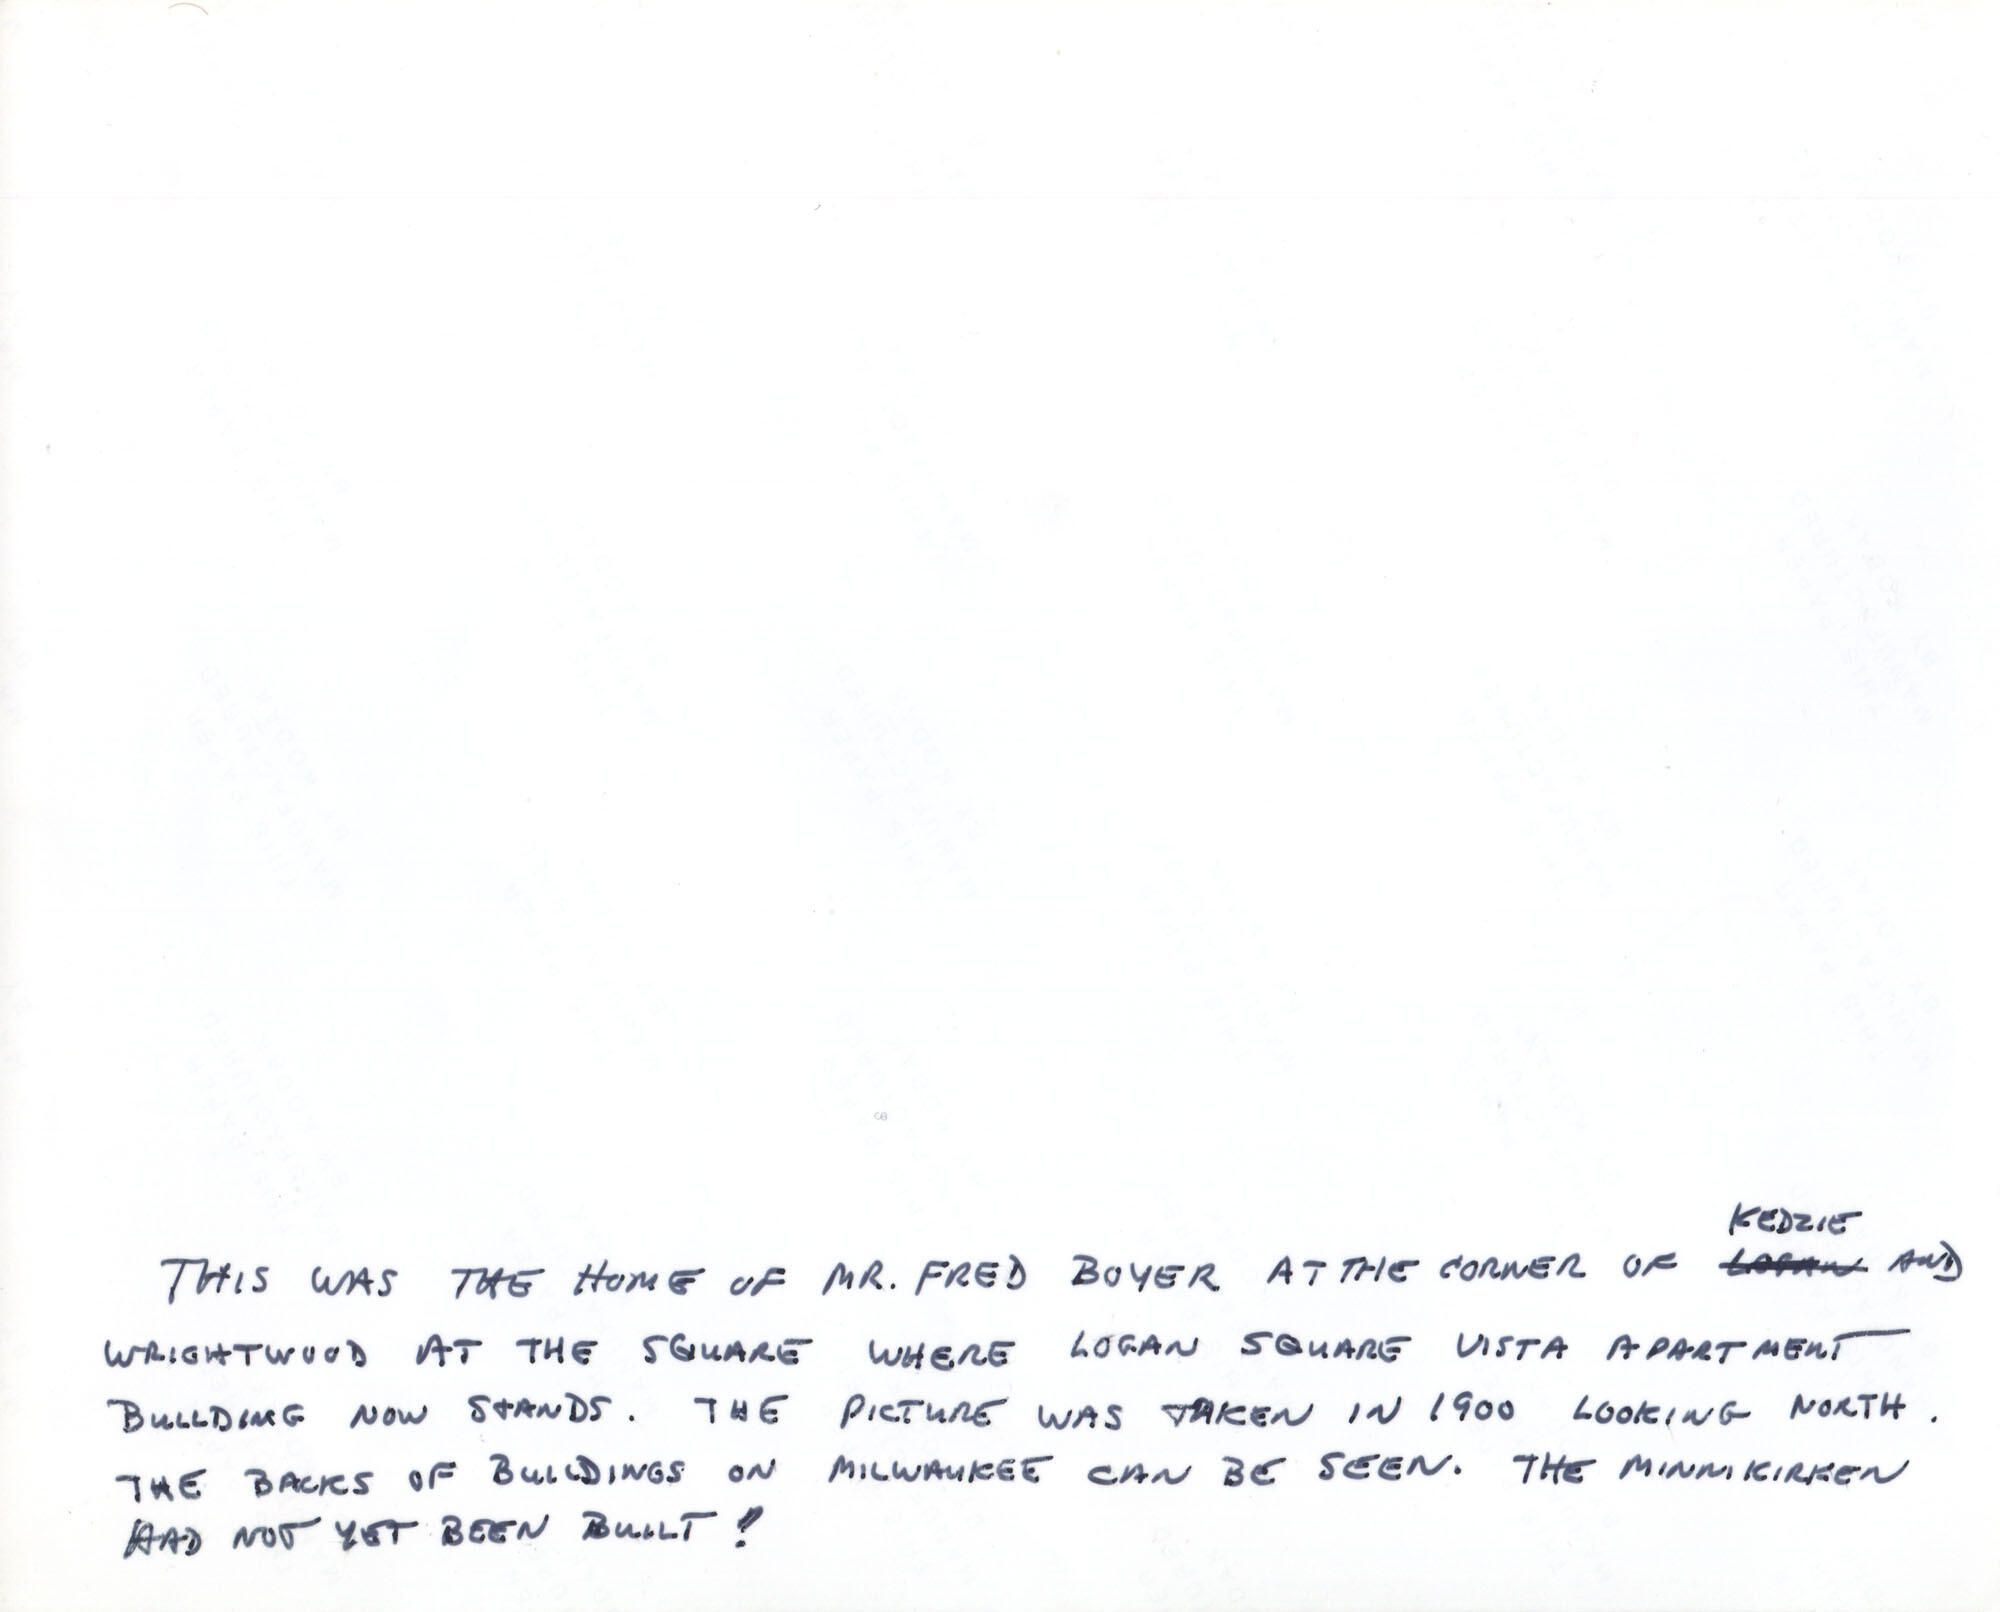 KEDZIE
THIS WAS THE HOME OF MR. FRED BOYER AT THE CORNER OF LOGAN AND
WRIGHTWOOD AT THE SQUARE WHERE LOGAN SQUARE VISTA APARTMENT
BUILDING NOW STANDS. THE PICTURE WAS TAKEN IN 1900 LOOKING NORTH.
THE BACKS OF BUILDINGS ON MILWAUKEE CAN BE SEEN. THE MINNIKIRKEN
HAD NOT YET BEEN BUILT!